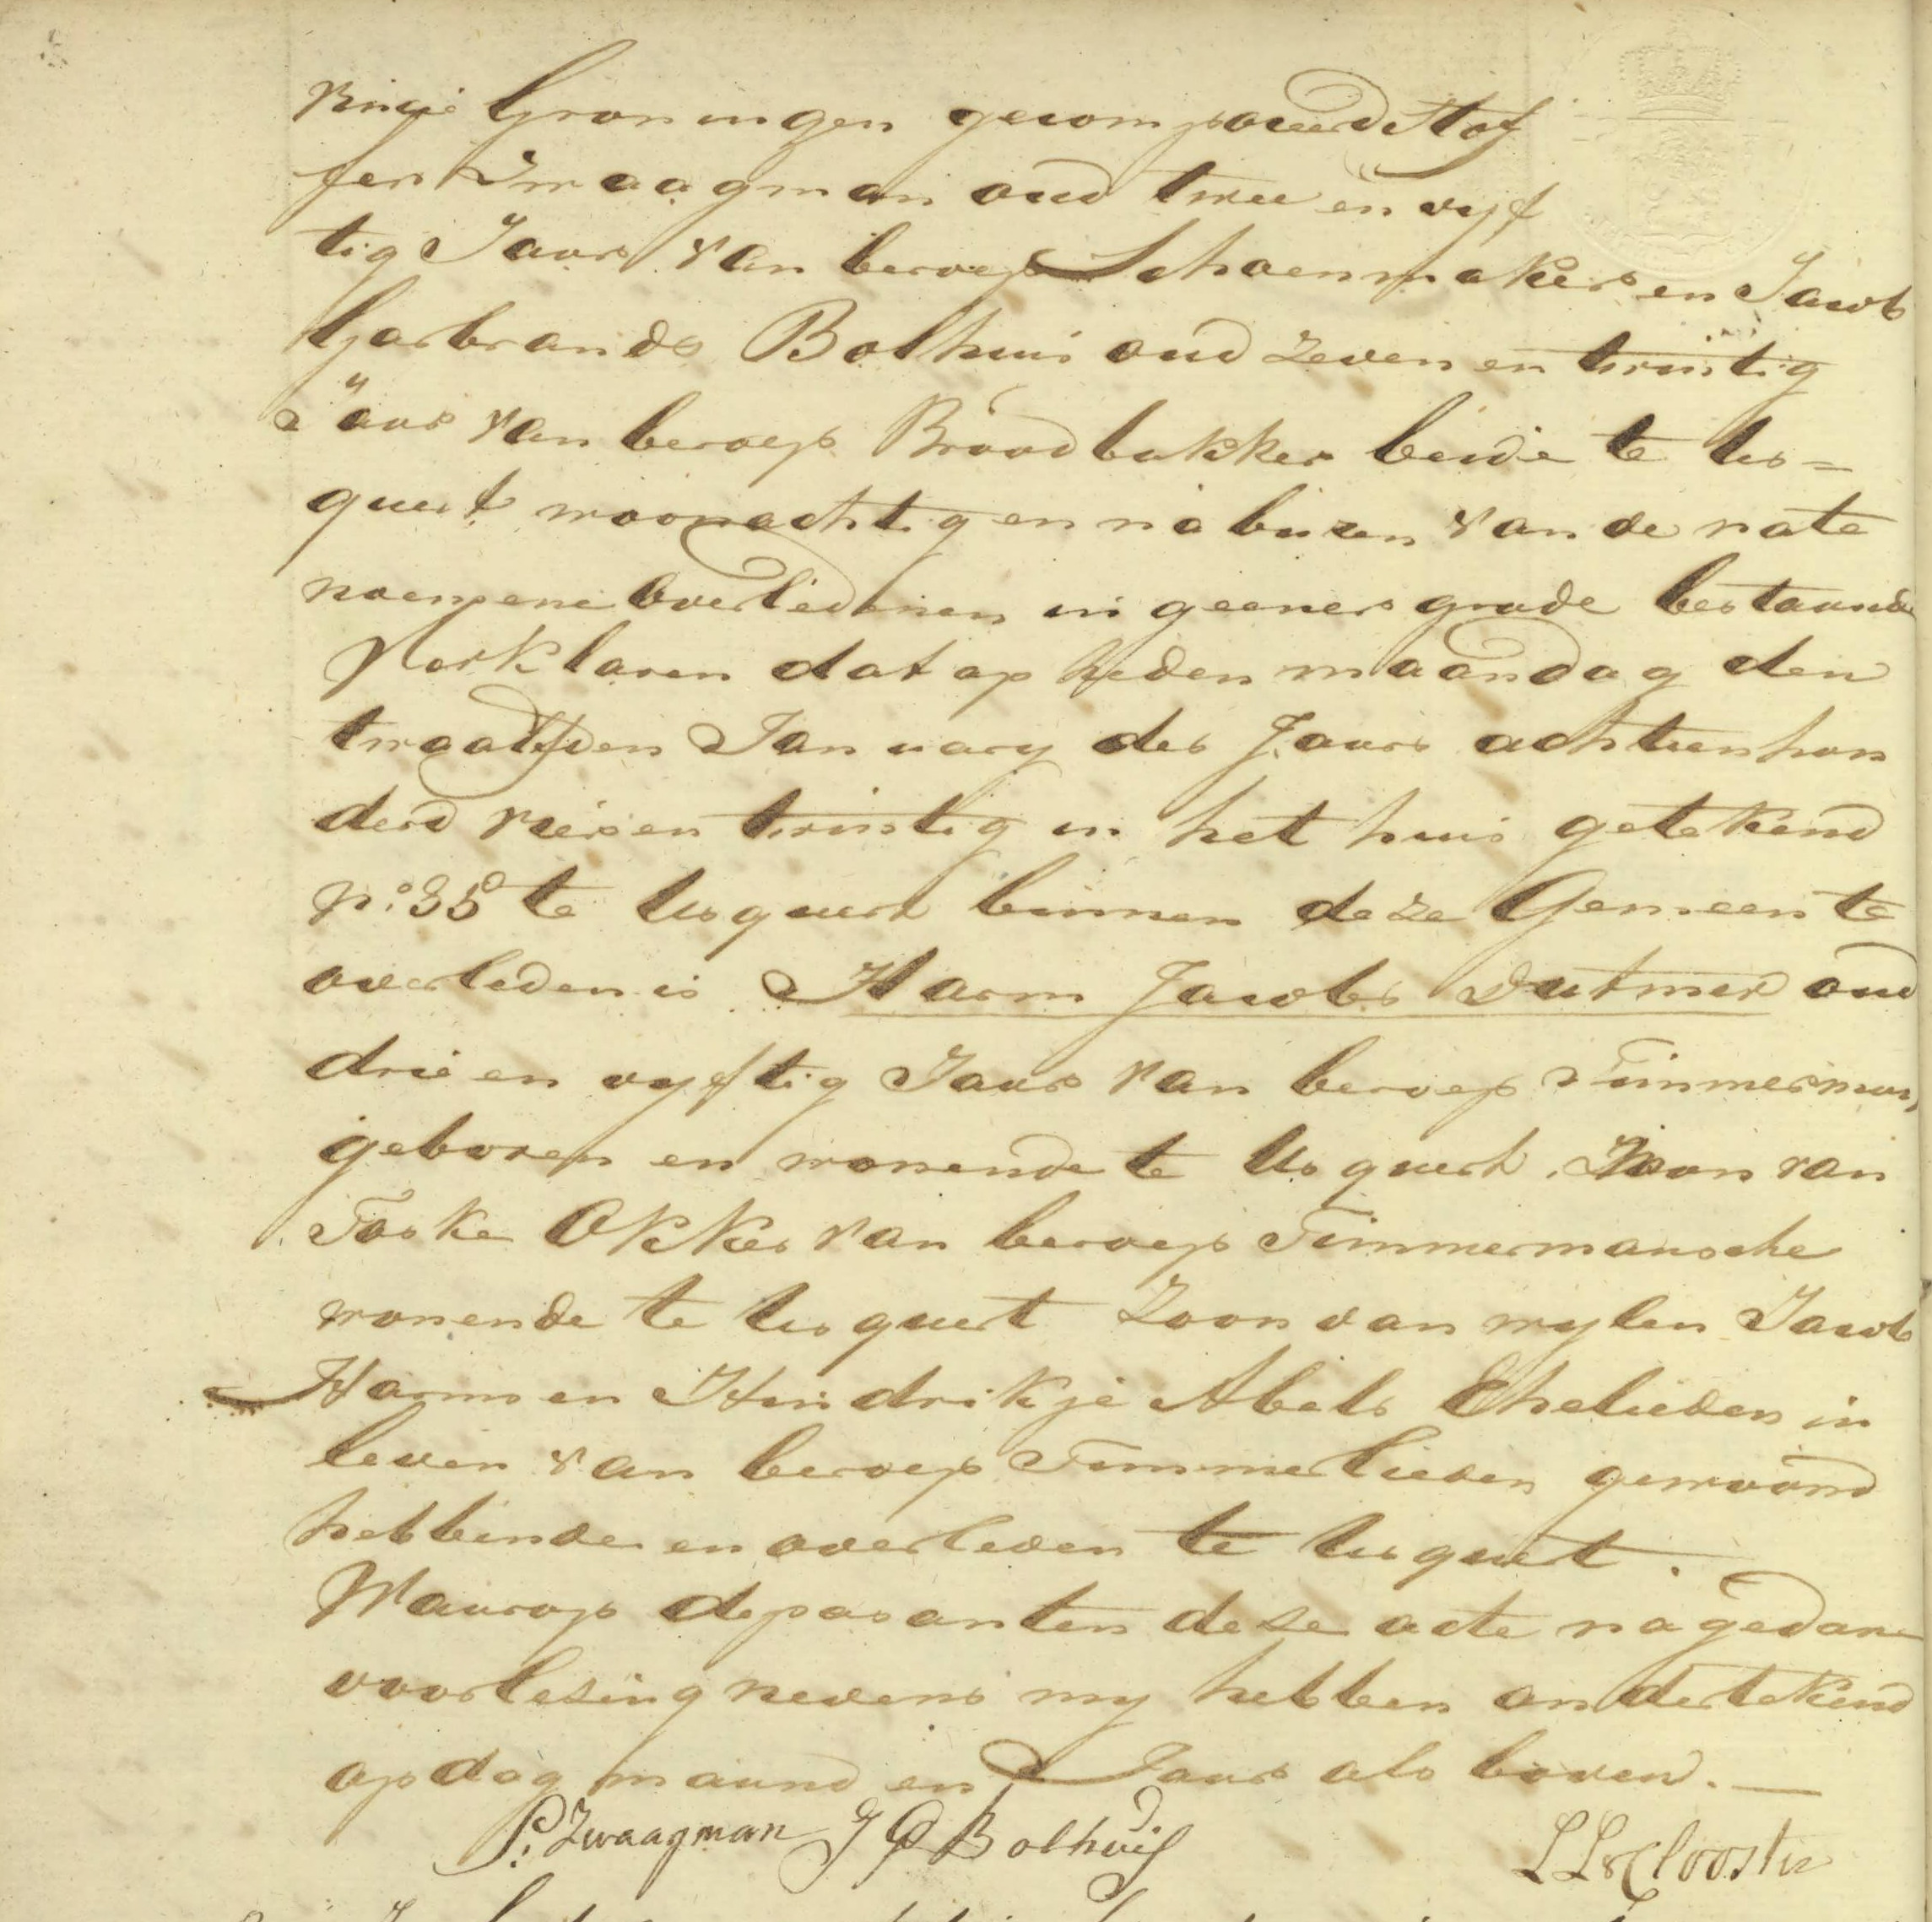 vincie Groningen gecompareerd Stof
fer Zwaagman oud twee en vyf
tig Jaar van beroep Schoenmaker en Jacob
Garbrands Bolhuis oud zeven en twintig
Jaar van beroep Broodbakker beide te Us=
quert woonachtig en naburen van de nate
noemene overledenen in geener grade bestaande
Verklaren dat op heden maandag den
twaalfden January des Jaars achttienhon
derd vier en twintig in het huis getekend
No: 35 te Usquert binnen deze Gemeente
overleden is Harm Jacobs Dutmer oud
drie en vyftig Jaar van beroep Timmerman
geboren en wonende te Usquert, Man van
Foske Okkes van beroep Timmermansche
wonende te Usquert Zoon van wylen Jacob
Harms en Hindrikje Abels Ehelieden in
leven van beroep Timmerlieden gewoond
hebbende en overleden te Usquert.
Waarop deposanten deze acte na gedane
voorlezing nevens my hebben ondertekend
op dag maand en Jaar als boven. —
S: Zwaagman J G Bolhuis L L v Clooster